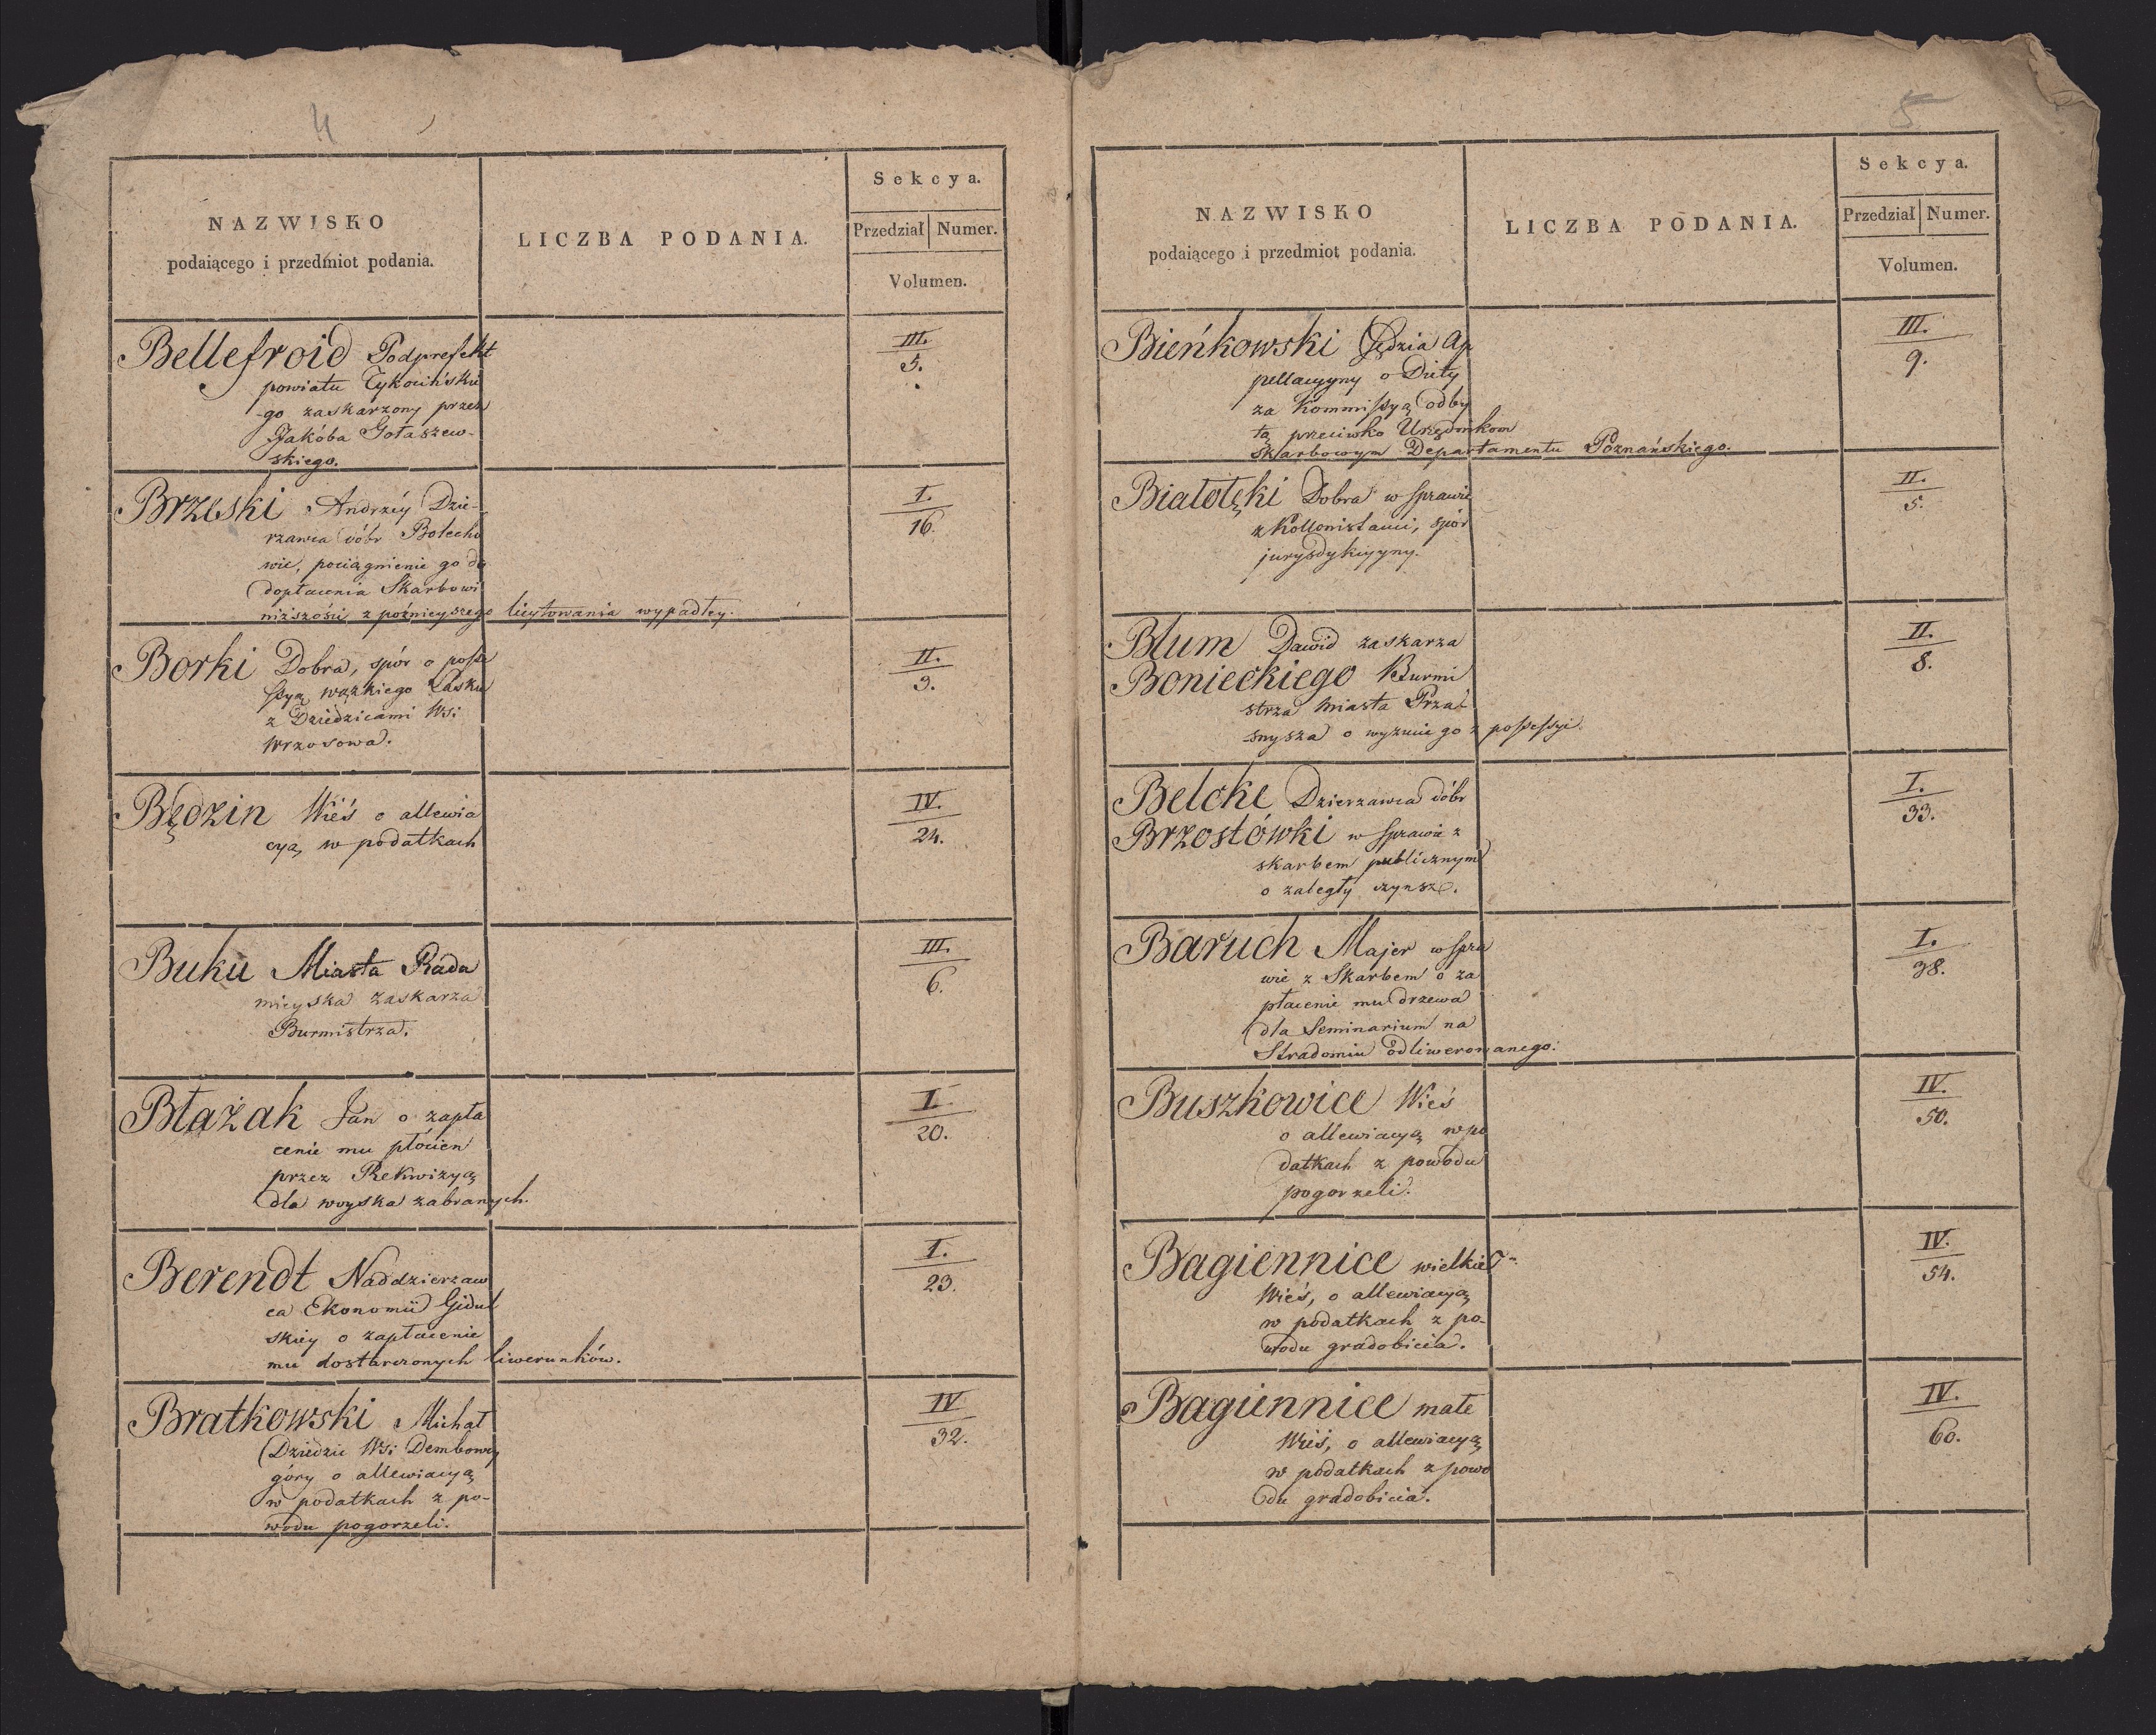 4
NAZWISKO
podaiącego i przedmiot podania.
LICZBA PODANIA.
Sekcya.
Przedział Numer.
Volumen.
Bellefroid Podprefekt
powiatu Tykocińskie
-go zaskarzony przez
Jakóba Gołaszew-
skiego.
III.
5.
Brzeski Andrzéy Dzie-
rzawca dóbr Bolecho
wic, pociągnienie go do
dopłacenia Skarbowi
niższości z poźnieyszego licytowania wypadłey.
I.
16.
Borki Dobra, spór o posse
ssyą wązkiego Lasku
z Dziedzicami Wsi
Wrzosowa.
II.
3.
Będzin Wieś o allewia
cyą w podatkach
IV.
24.
Buku Miasta Rada
mieyska zaskarza
Burmistrza.
III.
6.
Błażak Jan o zapła
cenie mu płócien
przez Rekwizyą
dla woyska zabranych.
I.
20.
Berendt Naddzierzaw
ca Ekonomii Gidul
skiey o zapłacenie
mu dostarczonych liwerunków.
I.
23.
Bratkowski Michał
Dziedzic Wsi Dembowey
góry o allewiacyą
w podatkach z po-
wodu pogorzeli.
IV
32.
5
NAZWISKO
podaiącego i przedmiot podania.
LICZBA PODANIA.
Sekcya.
Przedział Numer.
Volumen.
Bieńkowski Sędzia Ap
pellacyyny o Diety
za Kommissyą odby
tą przeciwko Urzędnikom
Skarbowym Departamentu Poznańskiego.
III.
9.
Białołęki Dobra w sprawie
z Kollonistami, spór
jurysdykcyyny.
II.
5.
Blum Dawid zaskarza
Bonieckiego Burmi
strza Miasta Prza
snysza o wyzucie go z possessyi.
II.
8.
Belcke Dzierzawca dóbr
Brzostówki w sprawie z
skarbem publicznym
o zaległy czynsz.
I.
33.
Baruch Majer w spra
wie z Skarbem o za
płacenie mu drzewa
dla Seminarium na
Stradomiu odliwerowanego.
I.
38.
Buszkowice Wieś
o allewiacyą w po
datkach z powodu
pogorzeli.
IV.
50.
Bagiennice wielkie
Wieś, o allewiacyą
w podatkach z po-
wodu gradobicia.
IV.
54.
Bagiennice małe
Wieś, o allewiacyą
w podatkach z powo
du gradobicia.
IV.
60.